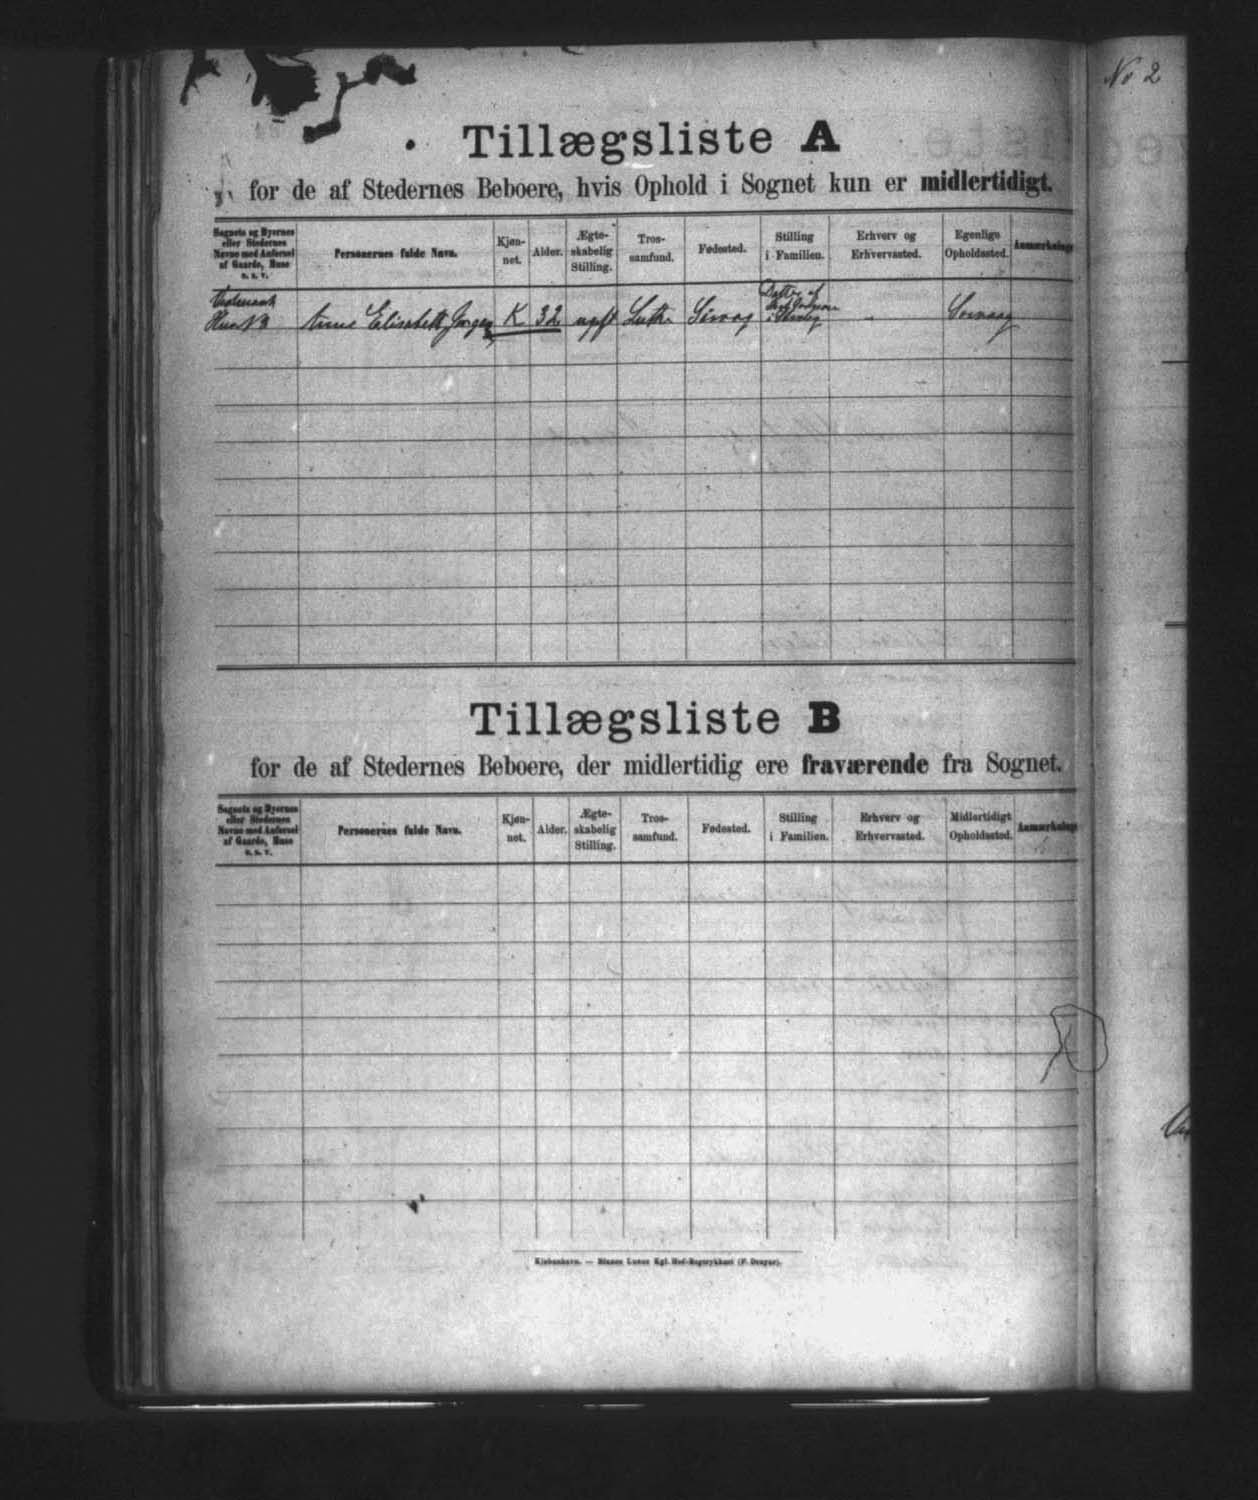 No 2
Tillægsliste A
for de af Stedernes Beboere, hvis Ophold i Sognet kun er midlertidigt.
Sognets og Byernes eller Stedernes Navne med Anførsel af Gaarde, Huse o. s. v.
Personernes fulde Navn.
Kjøn-net.
Alder.
Ægte-skabelig Stilling.
Tros-samfund.
Fødested.
Stilling i Familien.
Erhverv og Erhvervssted.
Egenlige Opholdssted.
Anmærkninge
Datter af
Elisabeth K 32 ugift Luth. Sørvaag
Tillægsliste B
for de af Stedernes Beboere, der midlertidig ere fraværende fra Sognet.
Sognets og Byernes eller Stedernes Navne med Anførsel af Gaarde, Huse o. s. v.
Personernes fulde Navn.
Kjøn-net.
Alder.
Ægte-skabelig Stilling.
Tros-samfund.
Fødested.
Stilling i Familien.
Erhverv og Erhvervssted.
Midlertidigt Opholdssted.
Anmærkninge
Kjøbenhavn. — Bianco Lunos Kgl. Hof-Bogtrykkeri (F. Dreyer).